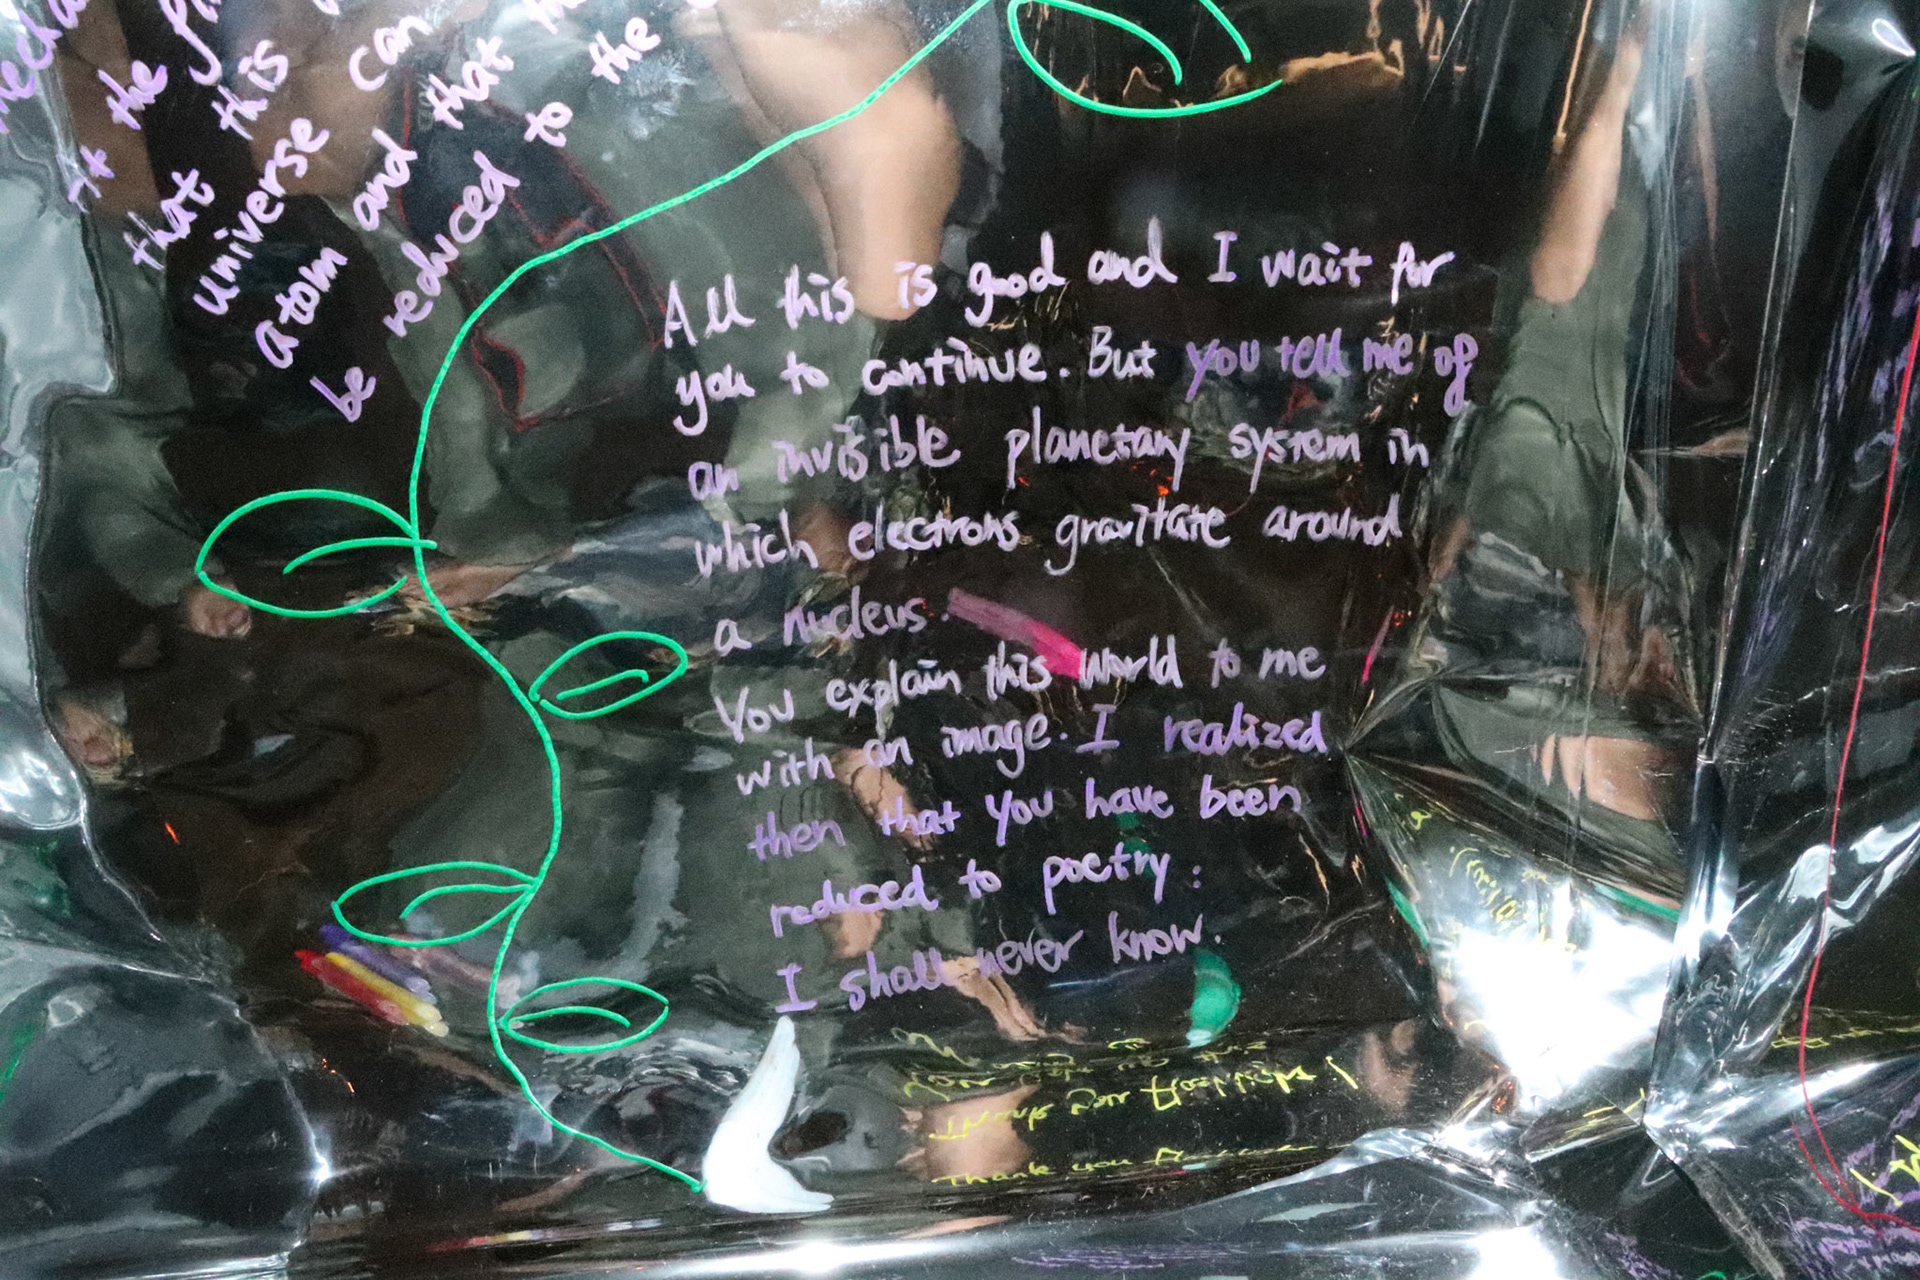 it the
that this can
universe
atom and that
be reduced to the
All this is good and I wait for
you to continue. But you tell me of
an invisible planetary system in
which electrons gravitate around
a nucleus.
You explain this world to me
with an image. I realized
then that you have been
reduced to poetry:
I shall never know.
Thank you